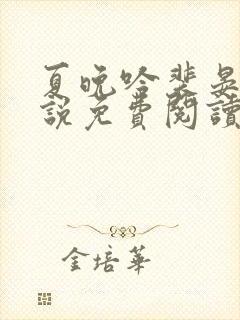 夏晚吟裴晏
說免費閱讀
金培華